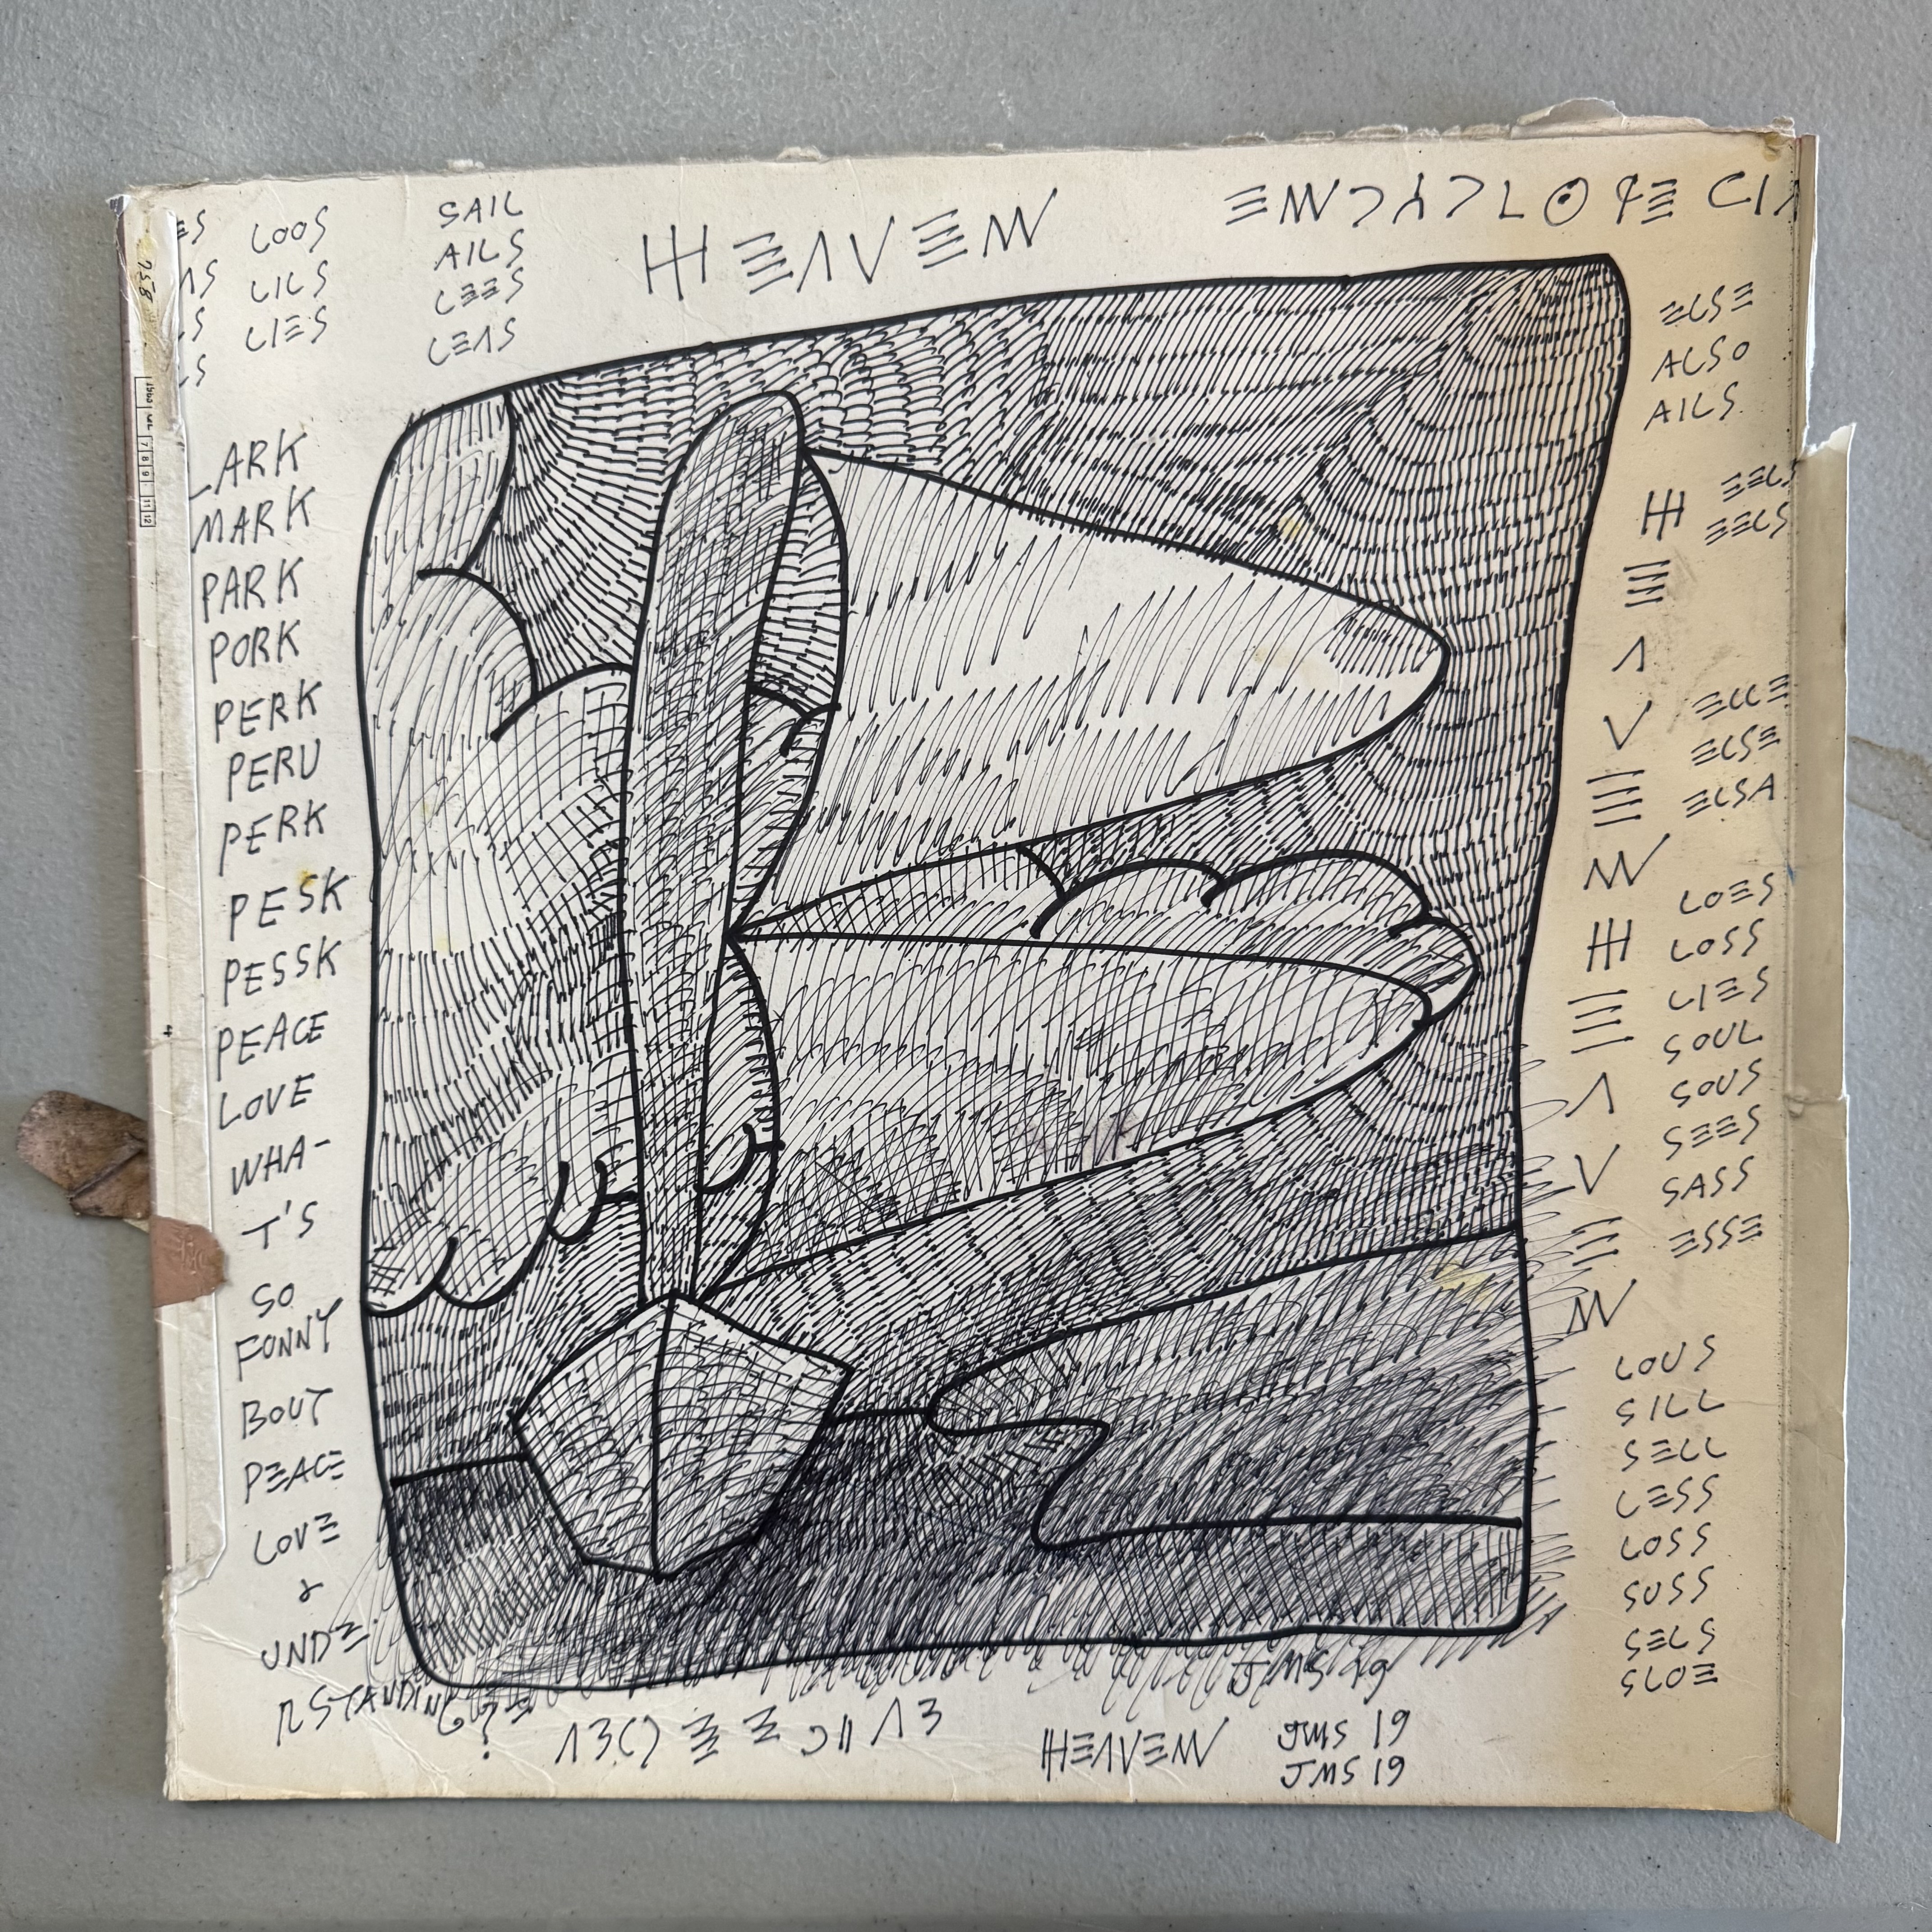 LOOS
LILS
LIES
SAIL
AILS
LEES
LEAS
HEAVEN
LARK
MARK
PARK
PORK
PERK
PERU
PERK
PESK
PESSK
PEACE
LOVE
WHA-
T'S
SO
FONNY
BOUT
PEACE
LOVE
&
UNDE
RSTANDING?
ELSE
ALSO
AILS
EELS
EELS
H
E
A
V
E
N
H
E
A
V
E
N
ELLE
ELSE
ELSA
LOES
LOSS
LIES
SOUL
SOUS
SEES
SASS
ESSE
LOUS
SILL
SELL
LESS
LOSS
SUSS
SELS
SLOE
JMS 19
HEAVEN
JMS 19
JMS 19